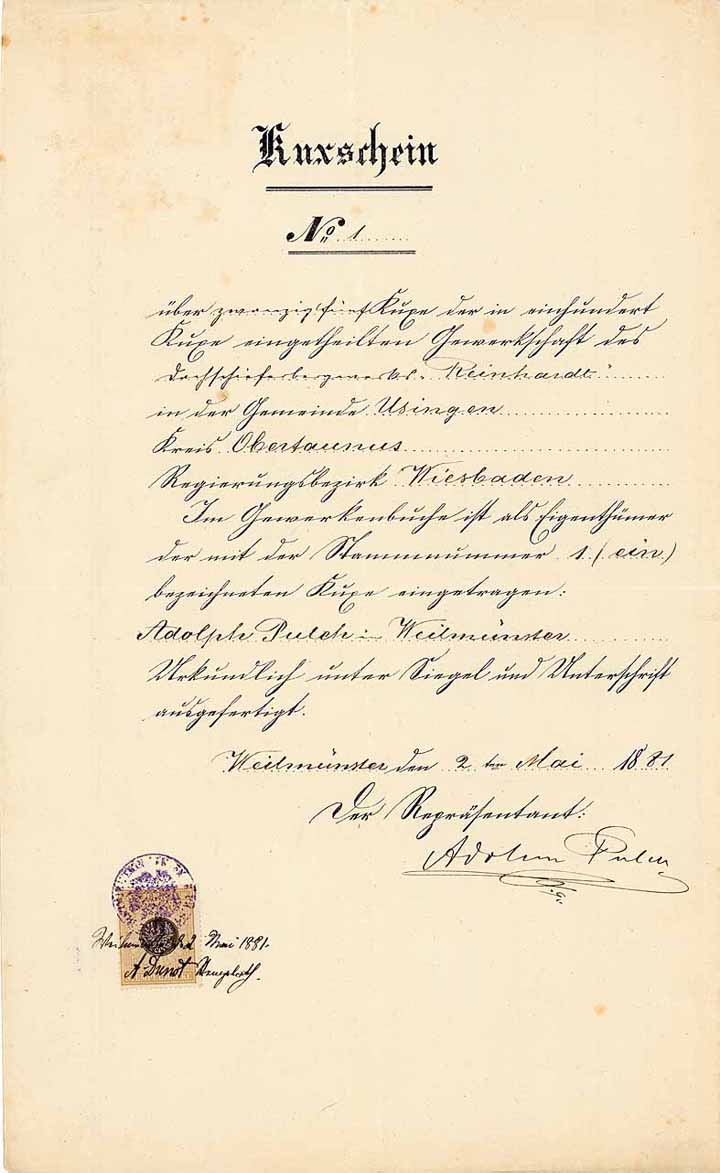 Kuxschein
No. 1
über zwanzig fünf Kuxe der in einhundert
Kuxe eingetheilten Gewerkschaft des
Dachschieferbergwerks "Reinhardt"
in der Gemeinde Usingen
Kreis Obertaunus
Regierungsbezirk Wiesbaden
Im Gewerkenbuche ist als Eigenthümer
der mit der Stammnummer 1 (ein)
bezeichneten Kuxe eingetragen:
Adolph Pulch in Weilmünster
Urkundlich unter Siegel und Unterschrift
ausgefertigt.
Weilmünster den 2ten Mai 1881
Der Repräsentant:
Adolph Pulch
2 Mai 1881.